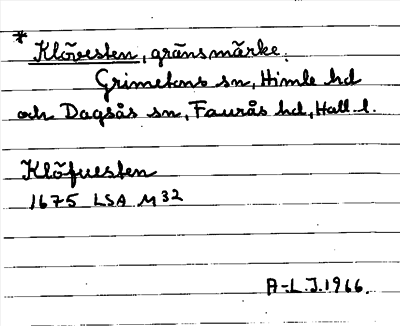 * Klövesten, gränsmärke.
Grimetons sn, Himle hd
och Dagsås sn, Faurås hd, Hall. l.
Klöfuesten
1675 LSA M 32
A-L.J. 1966.